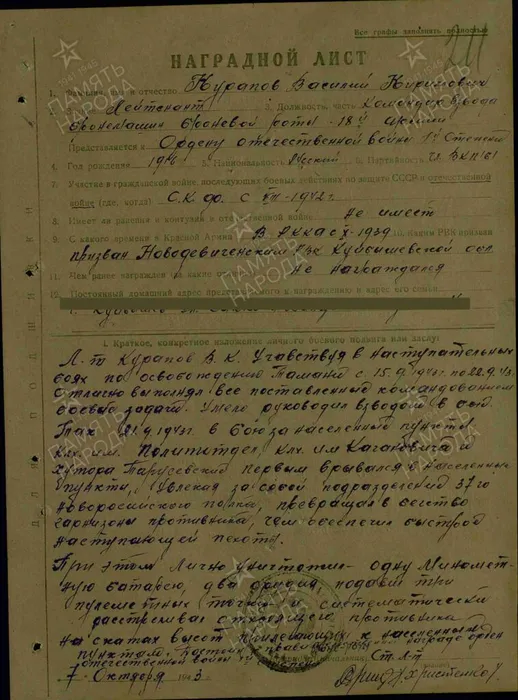 Все графы заполнять полностью
211
НАГРАДНОЙ ЛИСТ
1. Фамилия, имя и отчество Курапов Василий
Лейтенант 3. Должность, часть Командир взвода
бронемашин броневой роты - 18й армии
Представляется к Ордену отечественной войны 1й степени
4. Год рождения 5. Национальность Русский 6. Партийность Чл. ВКП(б)
7. Участие в гражданской войне, последующих боевых действиях по защите СССР и отечественной
войне (где, когда) С.К. фр. с VIII-1942 г.
8. Имеет ли ранения и контузии в отечественной войне Не имеет
9. С какого времени в Красной Армии В РККА с X-1939 10. Каким РВК призван
призван Новодевиченским РВК Куйбышевской обл.
11. Чем ранее награжден (за какие отличия) Не награждался
12. Постоянный домашний адрес представляемого к награждению и адрес его семьи
1. Краткое, конкретное изложение личного боевого подвига или заслуг
Л-т Курапов В.К. Участвуя в наступательных
боях по освобождению Тамани с 15.9.1943г по 22.9.43.
Отлично выполнял все поставленные командованием
боевые задачи. Умело руководил взводом в
21.9.1943г. в боях за населенные пункты
клх. им. Политотдел, клх. им. Кагановича и
хутора первым врывался в населенные
пункты, увлекая за собой подразделения 37го
новоросийского полка, превращая в бегство
гарнизоны противника, чем обеспечил быстрое
наступающей пехоты.
При этом лично уничтожив одну миномет-
ную батарею, два орудия, подавив три
пулеметных точки и систематически
расстреливая отходящего противника
на скатах высот прилегающих к населенным
пунктам. награде орден
отечественной войны
Ст. л-т
7 Октября 1943 г. Христенко
ПАМЯТЬ НАРОДА
1941-1945